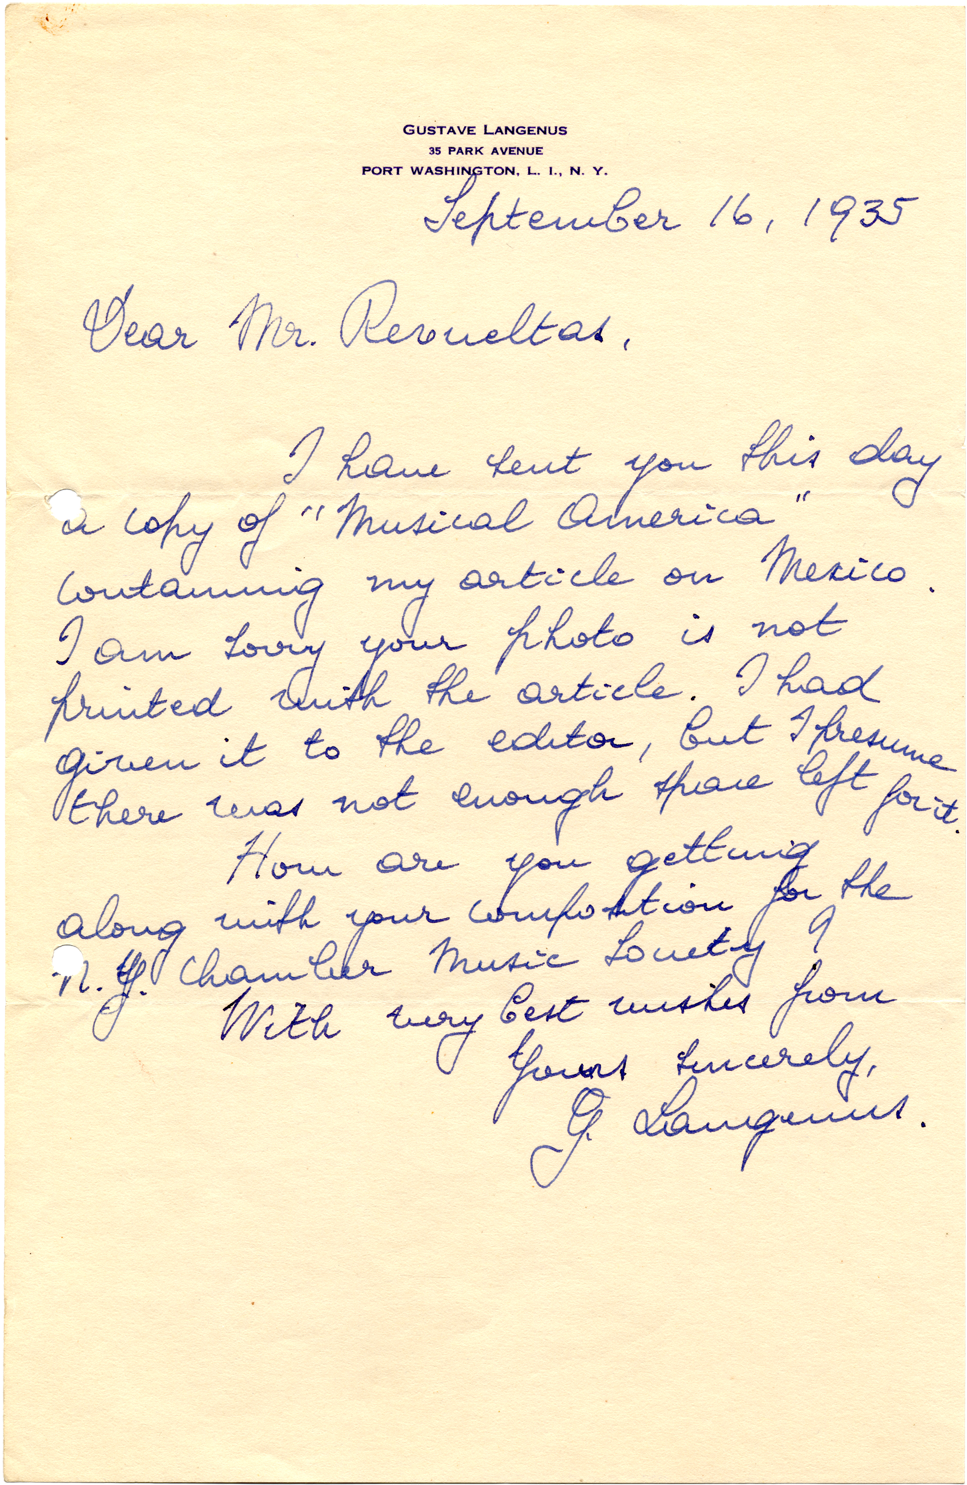 GUSTAVE LANGENUS
35 PARK AVENUE
PORT WASHINGTON, L. I., N. Y.
September 16, 1935
Dear Mr. Revueltas,
I have sent you this day
a copy of "Musical America"
containing my article on Mexico.
I am sorry your photo is not
printed with the article. I had
given it to the editor, but I presume
there was not enough space left for it.
How are you getting
along with your composition for the
N.Y. Chamber Music Society?
With very best wishes from
Yours sincerely,
G. Langenus.